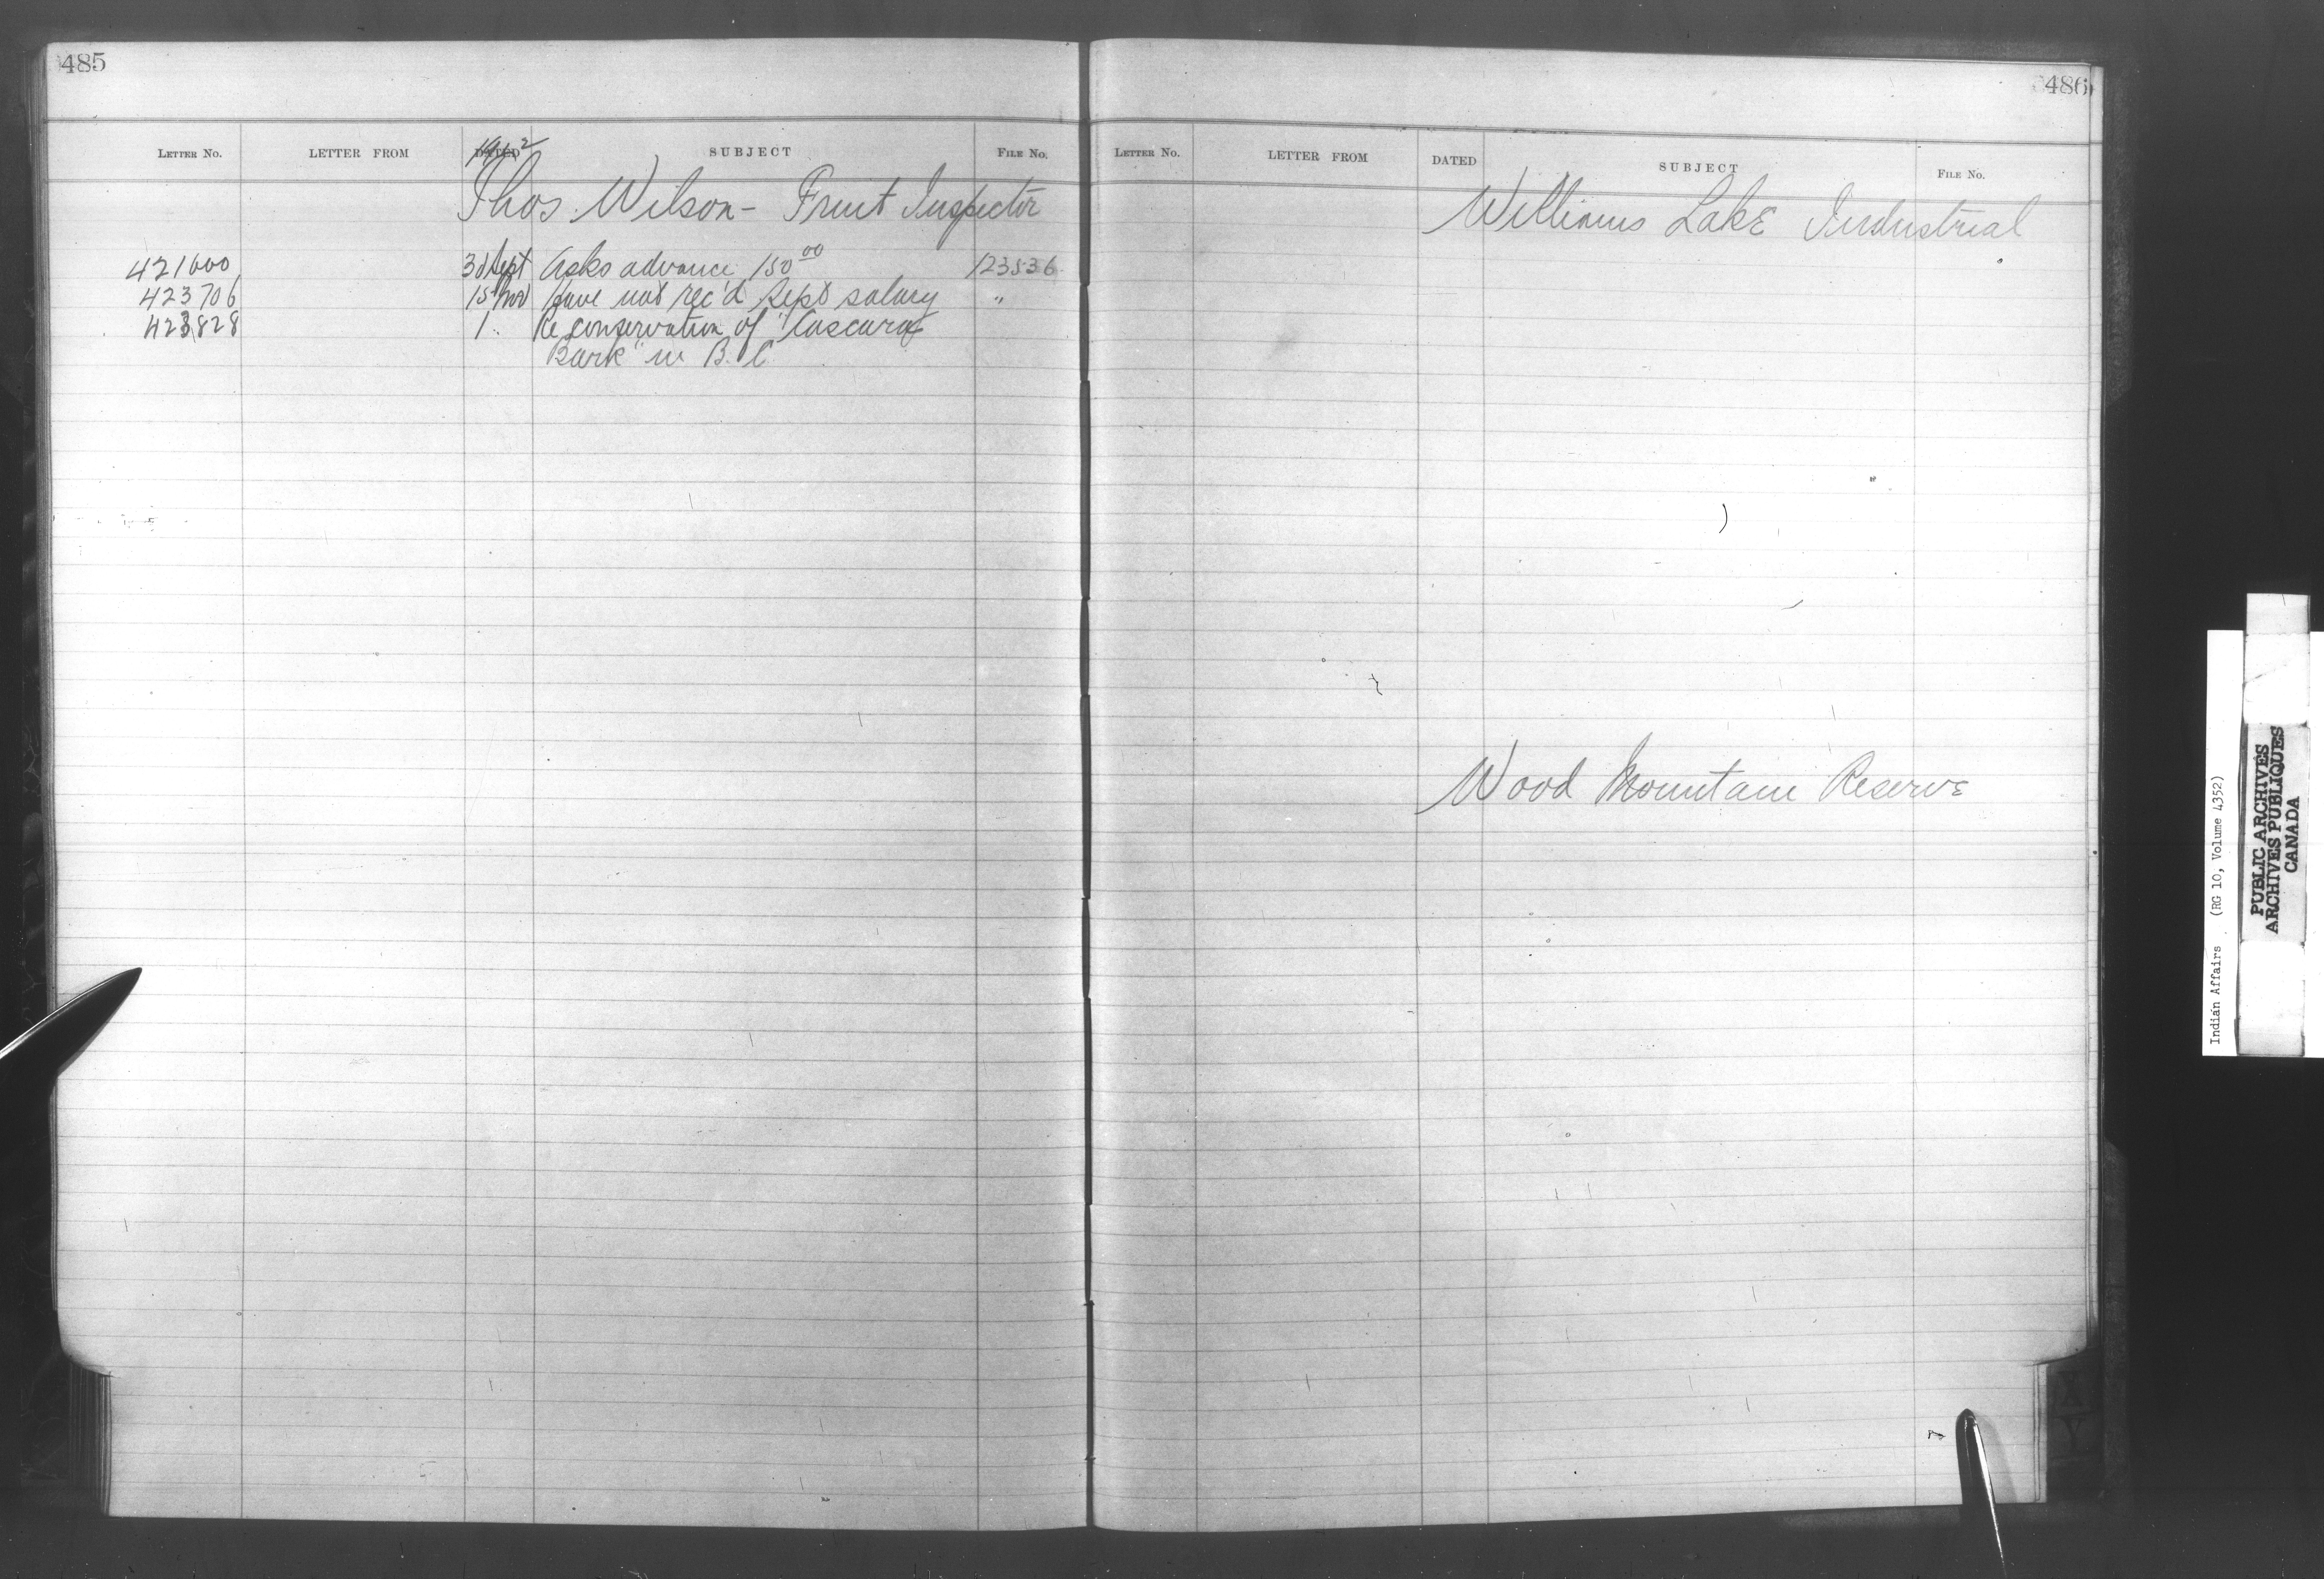 485
LETTER NO. LETTER FROM DATED SUBJECT FILE No.
1912
Thos. Wilson - Fruit Inspector
421600 30 Sept Asks advance 150 00 123536
423706 15 Nov Have not rec'd Sept salary "
423828 1 " Re conservation of "Cascara
Bark" in B.C.
486
LETTER NO. LETTER FROM DATED SUBJECT FILE No.
Williams Lake Industrial
Wood Mountain Reserve
Indian Affairs . (RG 10, Volume 4352)
PUBLIC ARCHIVES
ARCHIVES PUBLIQUES
CANADA
X
Y